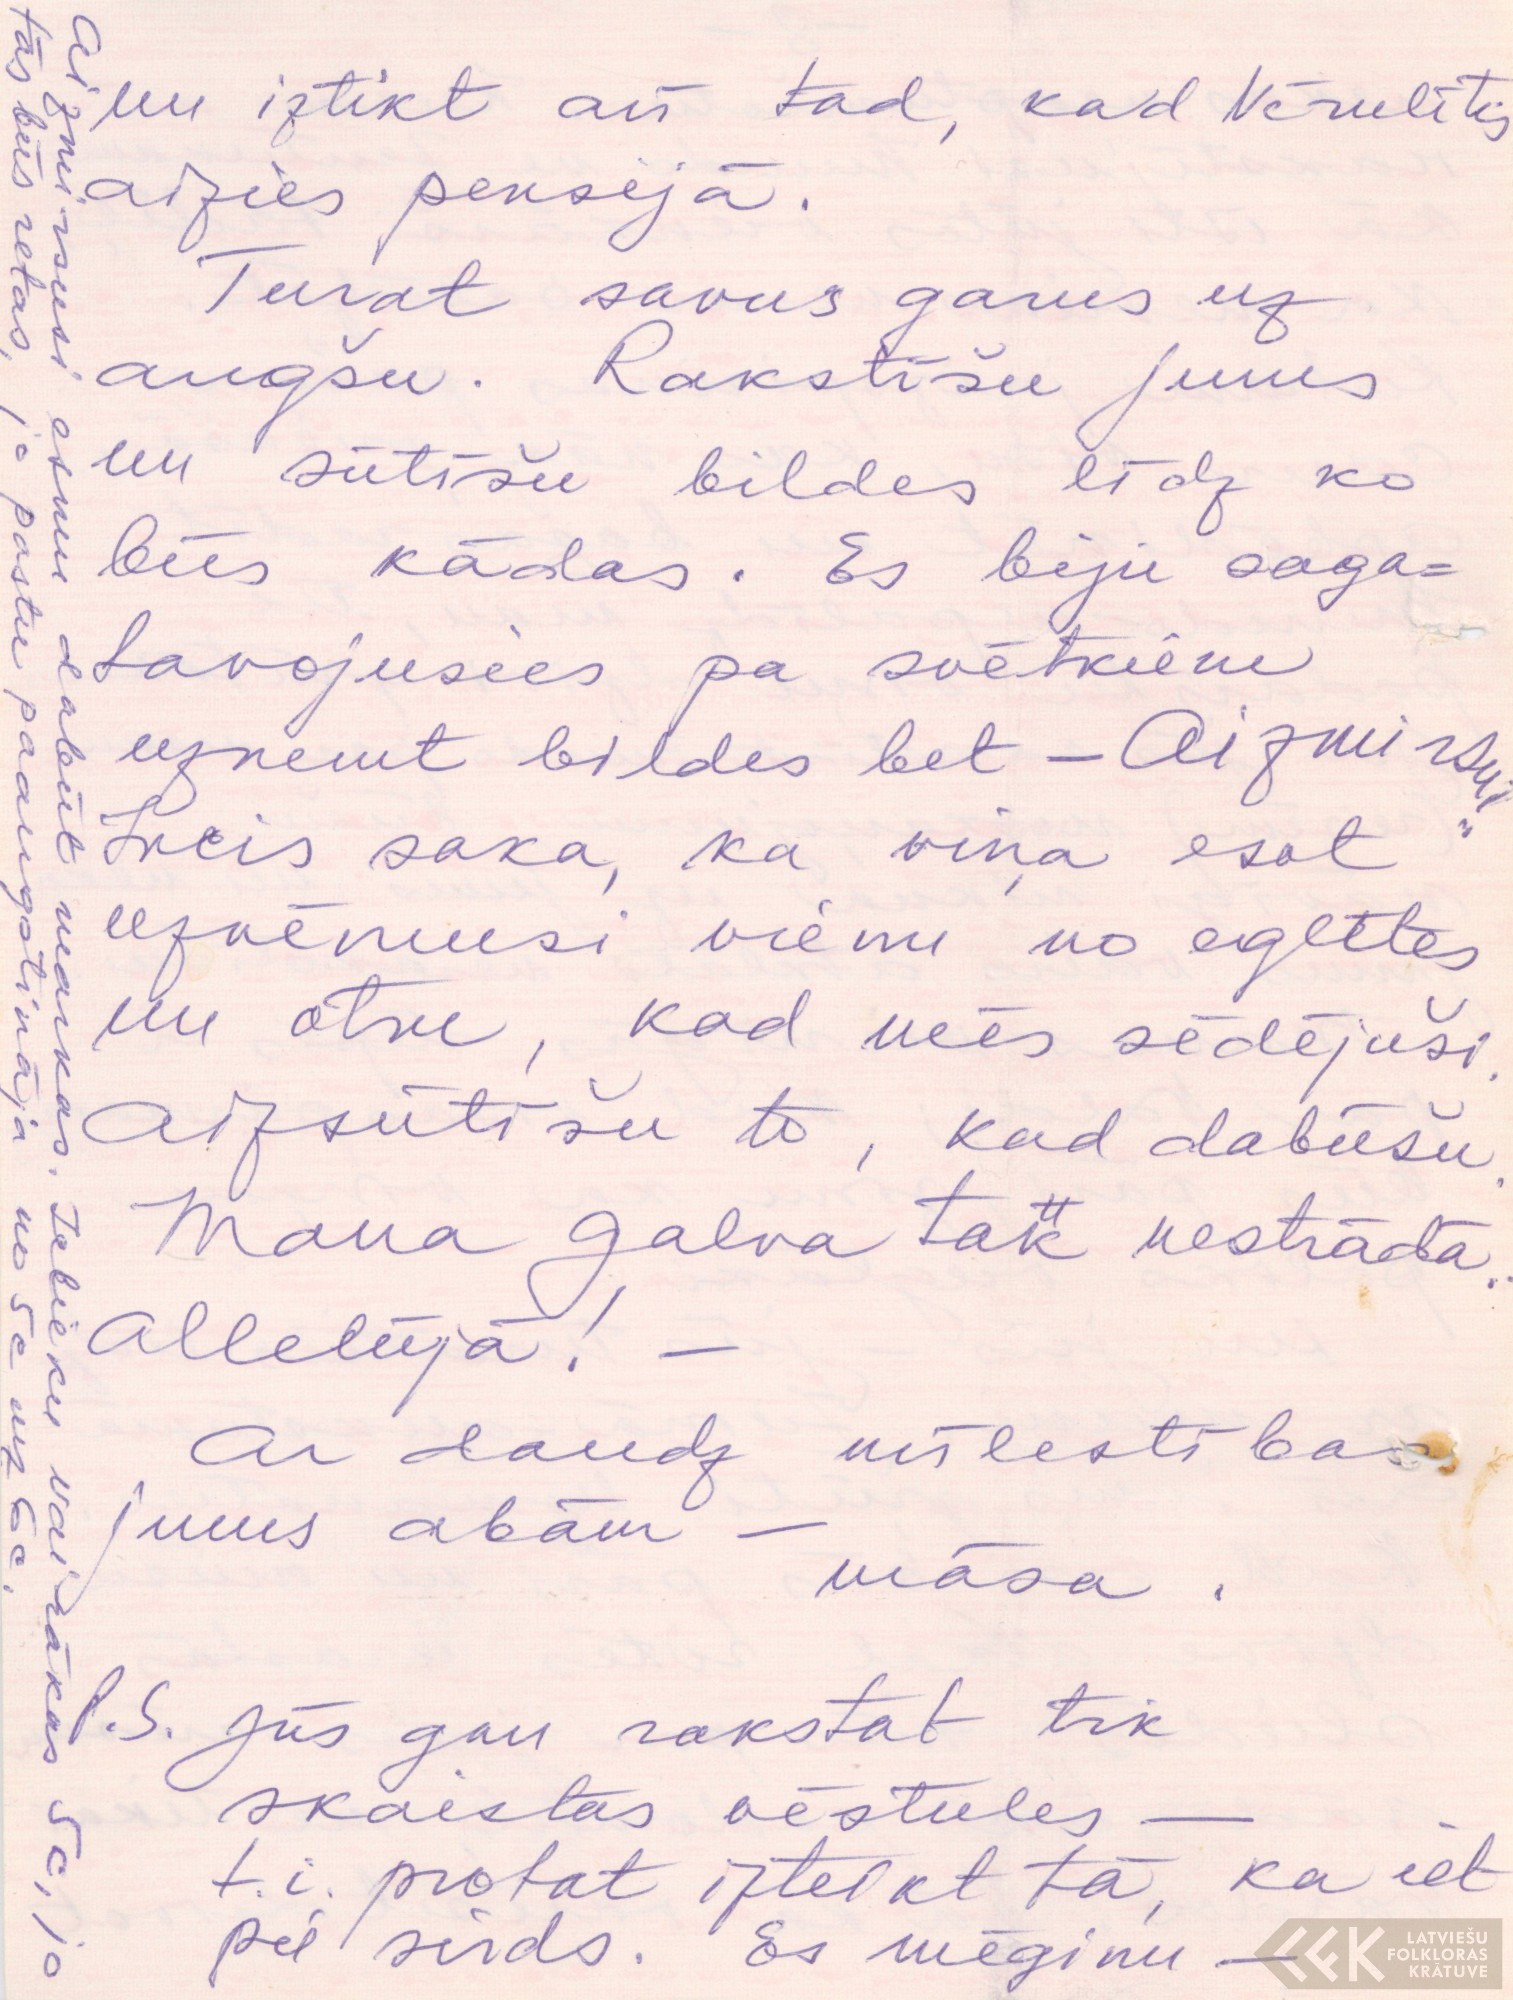 un iztikt arī tad, kad Vērulītis
aizies pensijā.
Turat savus garus uz
augšu. Rakstīšu jums
un sūtīšu bildes līdz ko
būs kādas. Es biju saga=
tavojusies pa svētkiem
uzņemt bildes bet – Aizmirsu!"
saka, ka viņa esot
uzņēmusi vienu no eglītes
un otru, kad mēs sēdējuši.
Aizsūtīšu to, kad dabūšu.
Mana galva "tak" nestrādā.
Allelūjā! –
Ar daudz mīlestības
jums abām –
māsa.
P.S. Jūs gan rakstat tik
skaistas vēstules –
t.i. protat izteikt tā, ka iet
pie sirds. Es mēģinu –
Aizmirsusi esmu dabūt markas. Ielieku vairākas 5c, jo
tās būs retas, jo pastu paaugstināja no 5c uz 6c.
LATVIEŠU
FOLKLORAS
KRĀTUVE